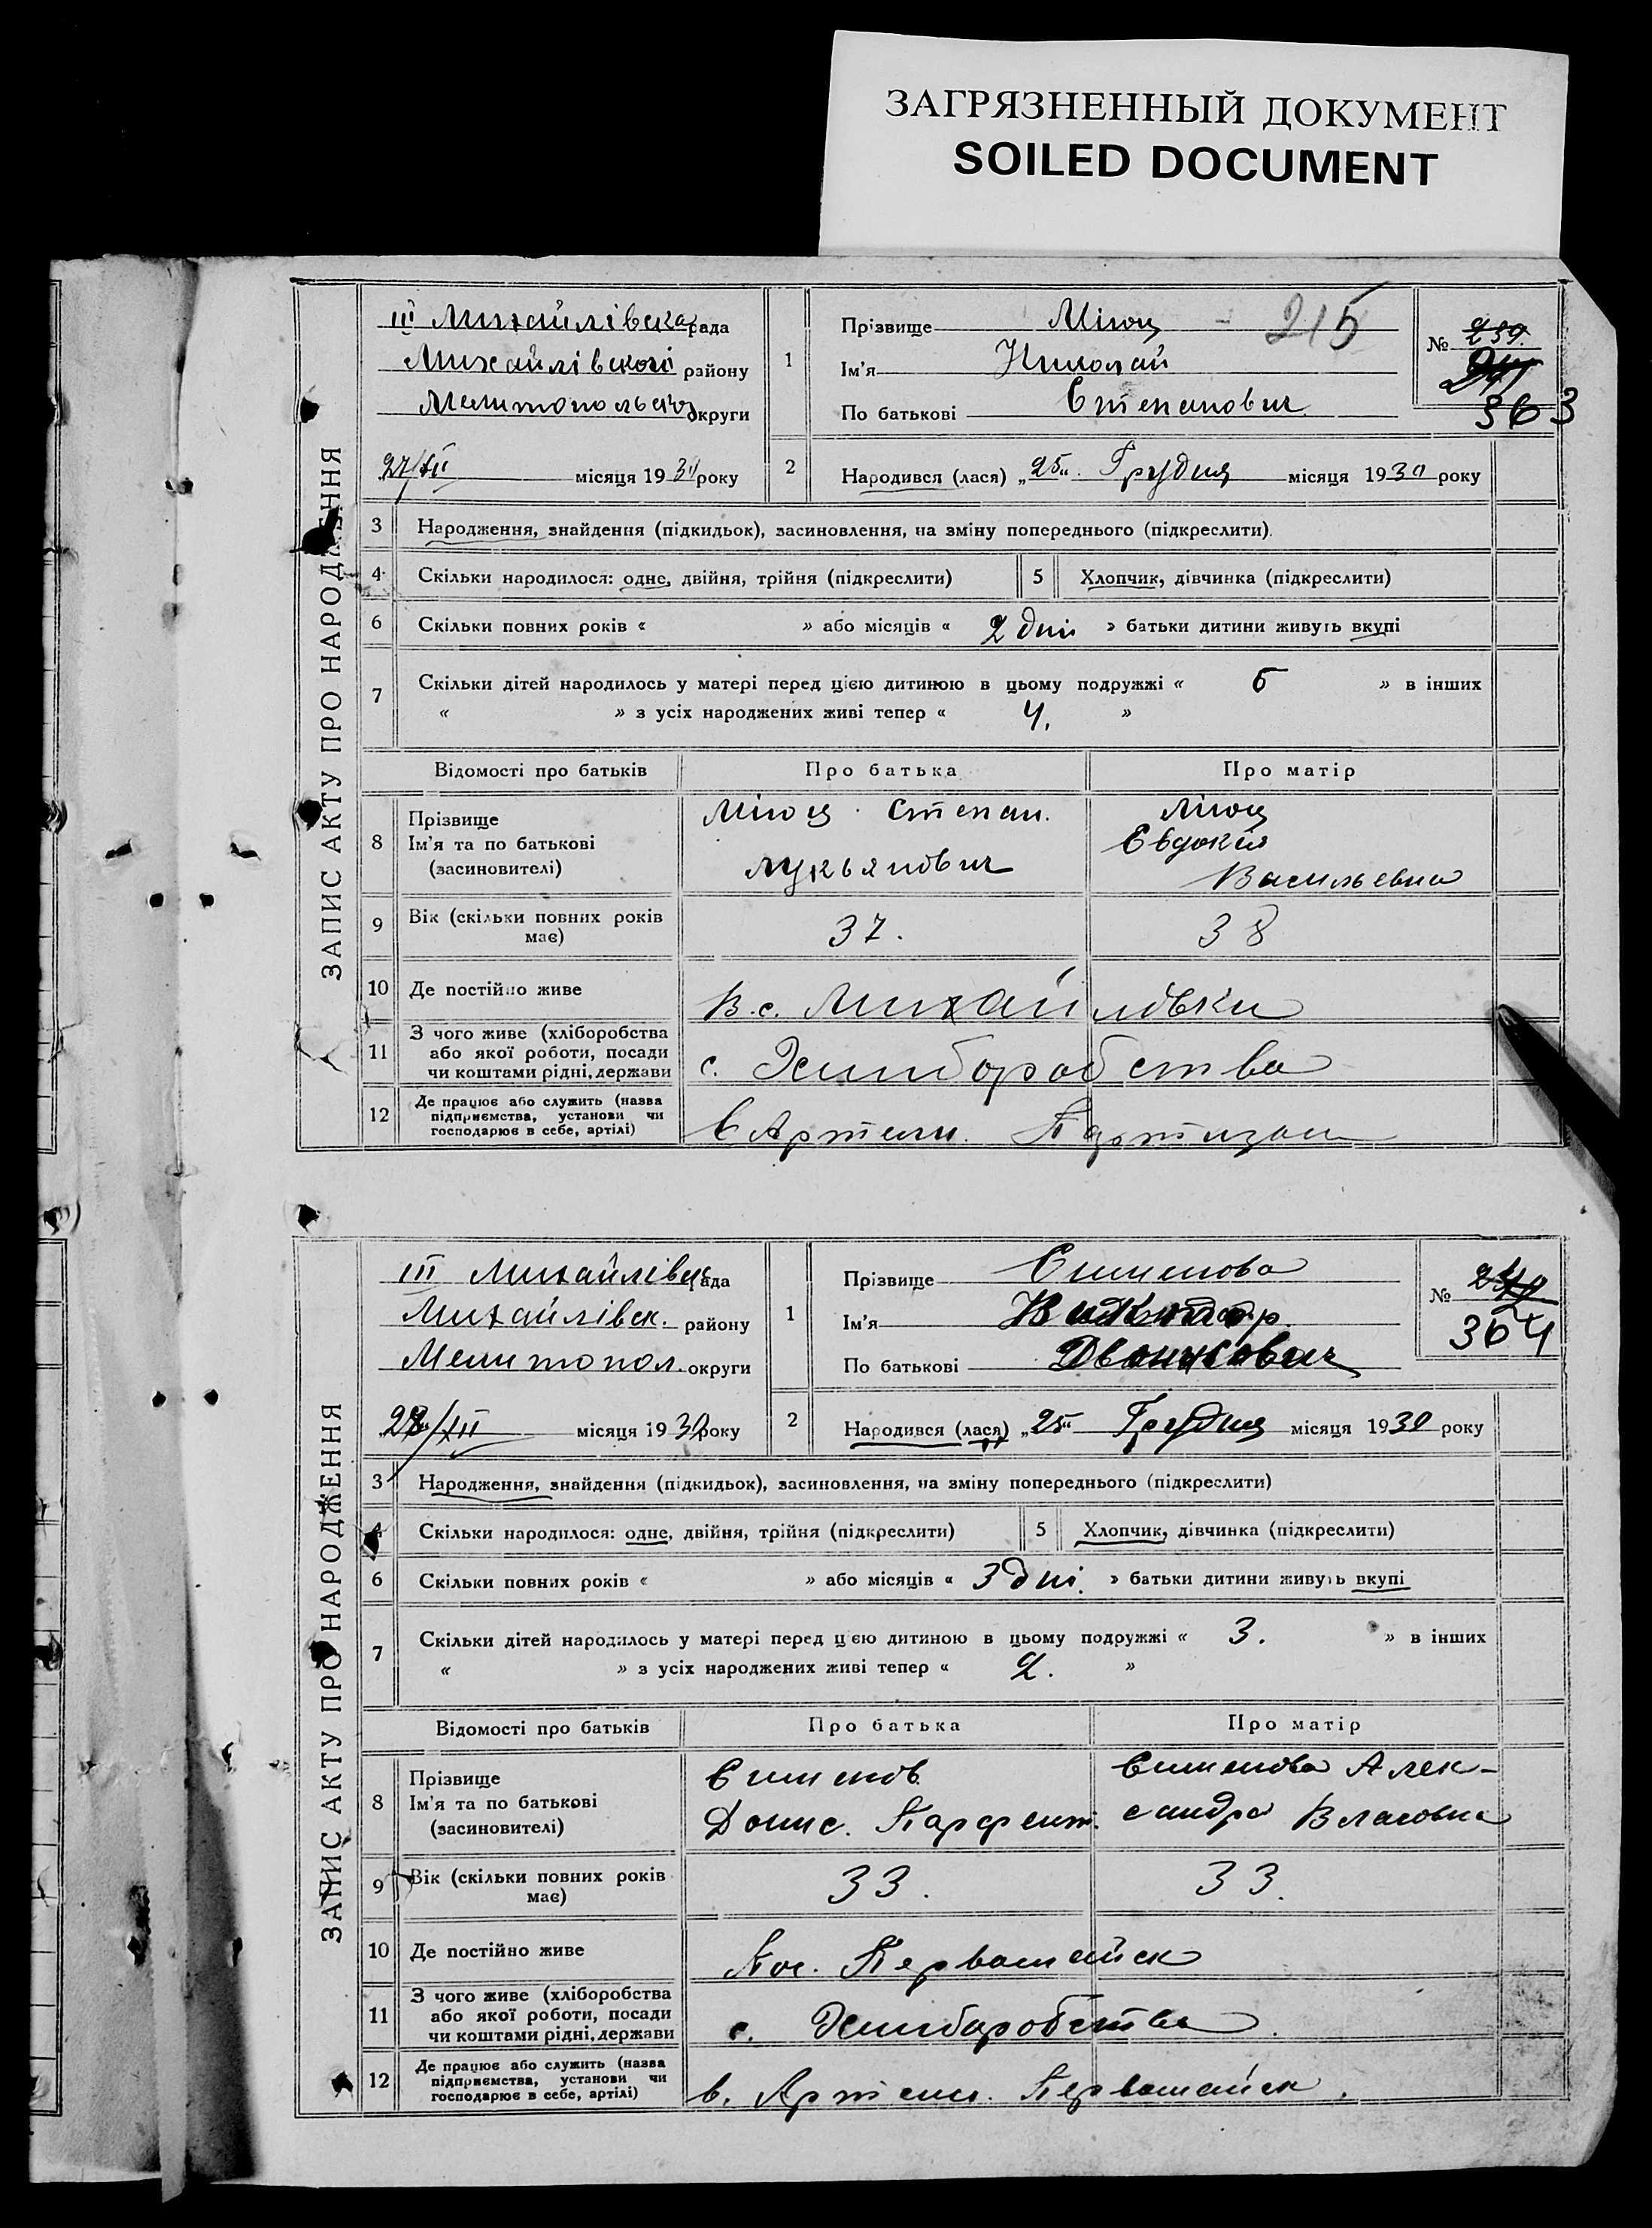 ЗАГРЯЗНЕННЫЙ ДОКУМЕНТ
SOILED DOCUMENT
ЗАПИС АКТУ ПРО НАРОДЖЕННЯ
III Михайлівска рада
Михайлівского району
Мелитопольск округи
27/XII місяця 1930 року
1
Прізвище Мігоц - 215
Ім'я Николай
По батькові Степанович
№ 239
363
2
Народився (лася) „25" Грудня місяця 1930 року
3 Народження, знайдення (підкидьок), засиновлення, на зміну попереднього (підкреслити).
4 Скільки народилося: одне, двійня, трійня (підкреслити) 5 Хлопчик, дівчинка (підкреслити)
6 Скільки повних років « » або місяців « 2 дні » батьки дитини живуть вкупі
7 Скільки дітей народилось у матері перед цією дитиною в цьому подружжі « 5 » в інших
« » з усіх народжених живі тепер « 4. »
Відомості про батьків Про батька Про матір
8 Прізвище
Ім'я та по батькові
(засиновителі)
Мігоц Степан.
Лукьянович
Мігоц
Евдокия
Васильевна
9 Вік (скільки повних років
має)
37. 38
10 Де постійно живе В.с. Михайловки
11 З чого живе (хліборобства
або якої роботи, посади
чи коштами рідні, держави
с. Хлиборобства
12 Де працює або служить (назва
підприємства, установи чи
господарює в себе, артілі)
в Артели. Партизан
ЗАПИС АКТУ ПРО НАРОДЖЕННЯ
III Михайлівск рада
Михайлівск. району
Мелитопол. округи
28/XII місяця 1930 року
1
Прізвище
Ім'я
По батькові
№
364
2
Народився (лася) „25" Грудня місяця 1930 року
3 Народження, знайдення (підкидьок), засиновлення, на зміну попереднього (підкреслити)
4 Скільки народилося: одне, двійня, трійня (підкреслити) 5 Хлопчик, дівчинка (підкреслити)
6 Скільки повних років « » або місяців « 3 дні. » батьки дитини живуть вкупі
7 Скільки дітей народилось у матері перед цією дитиною в цьому подружжі « 3. » в інших
« » з усіх народжених живі тепер « 2. »
Відомості про батьків Про батька Про матір
8 Прізвище
Ім'я та по батькові
(засиновителі)
Донис. Парфент.
Алек-
сандра Власовна
9 Вік (скільки повних років
має)
33. 33.
10 Де постійно живе Пос. Первомайск
11 З чого живе (хліборобства
або якої роботи, посади
чи коштами рідні, держави
с. Хлиборобства
12 Де працює або служить (назва
підприємства, установи чи
господарює в себе, артілі)
в. Артели. Первомайск.